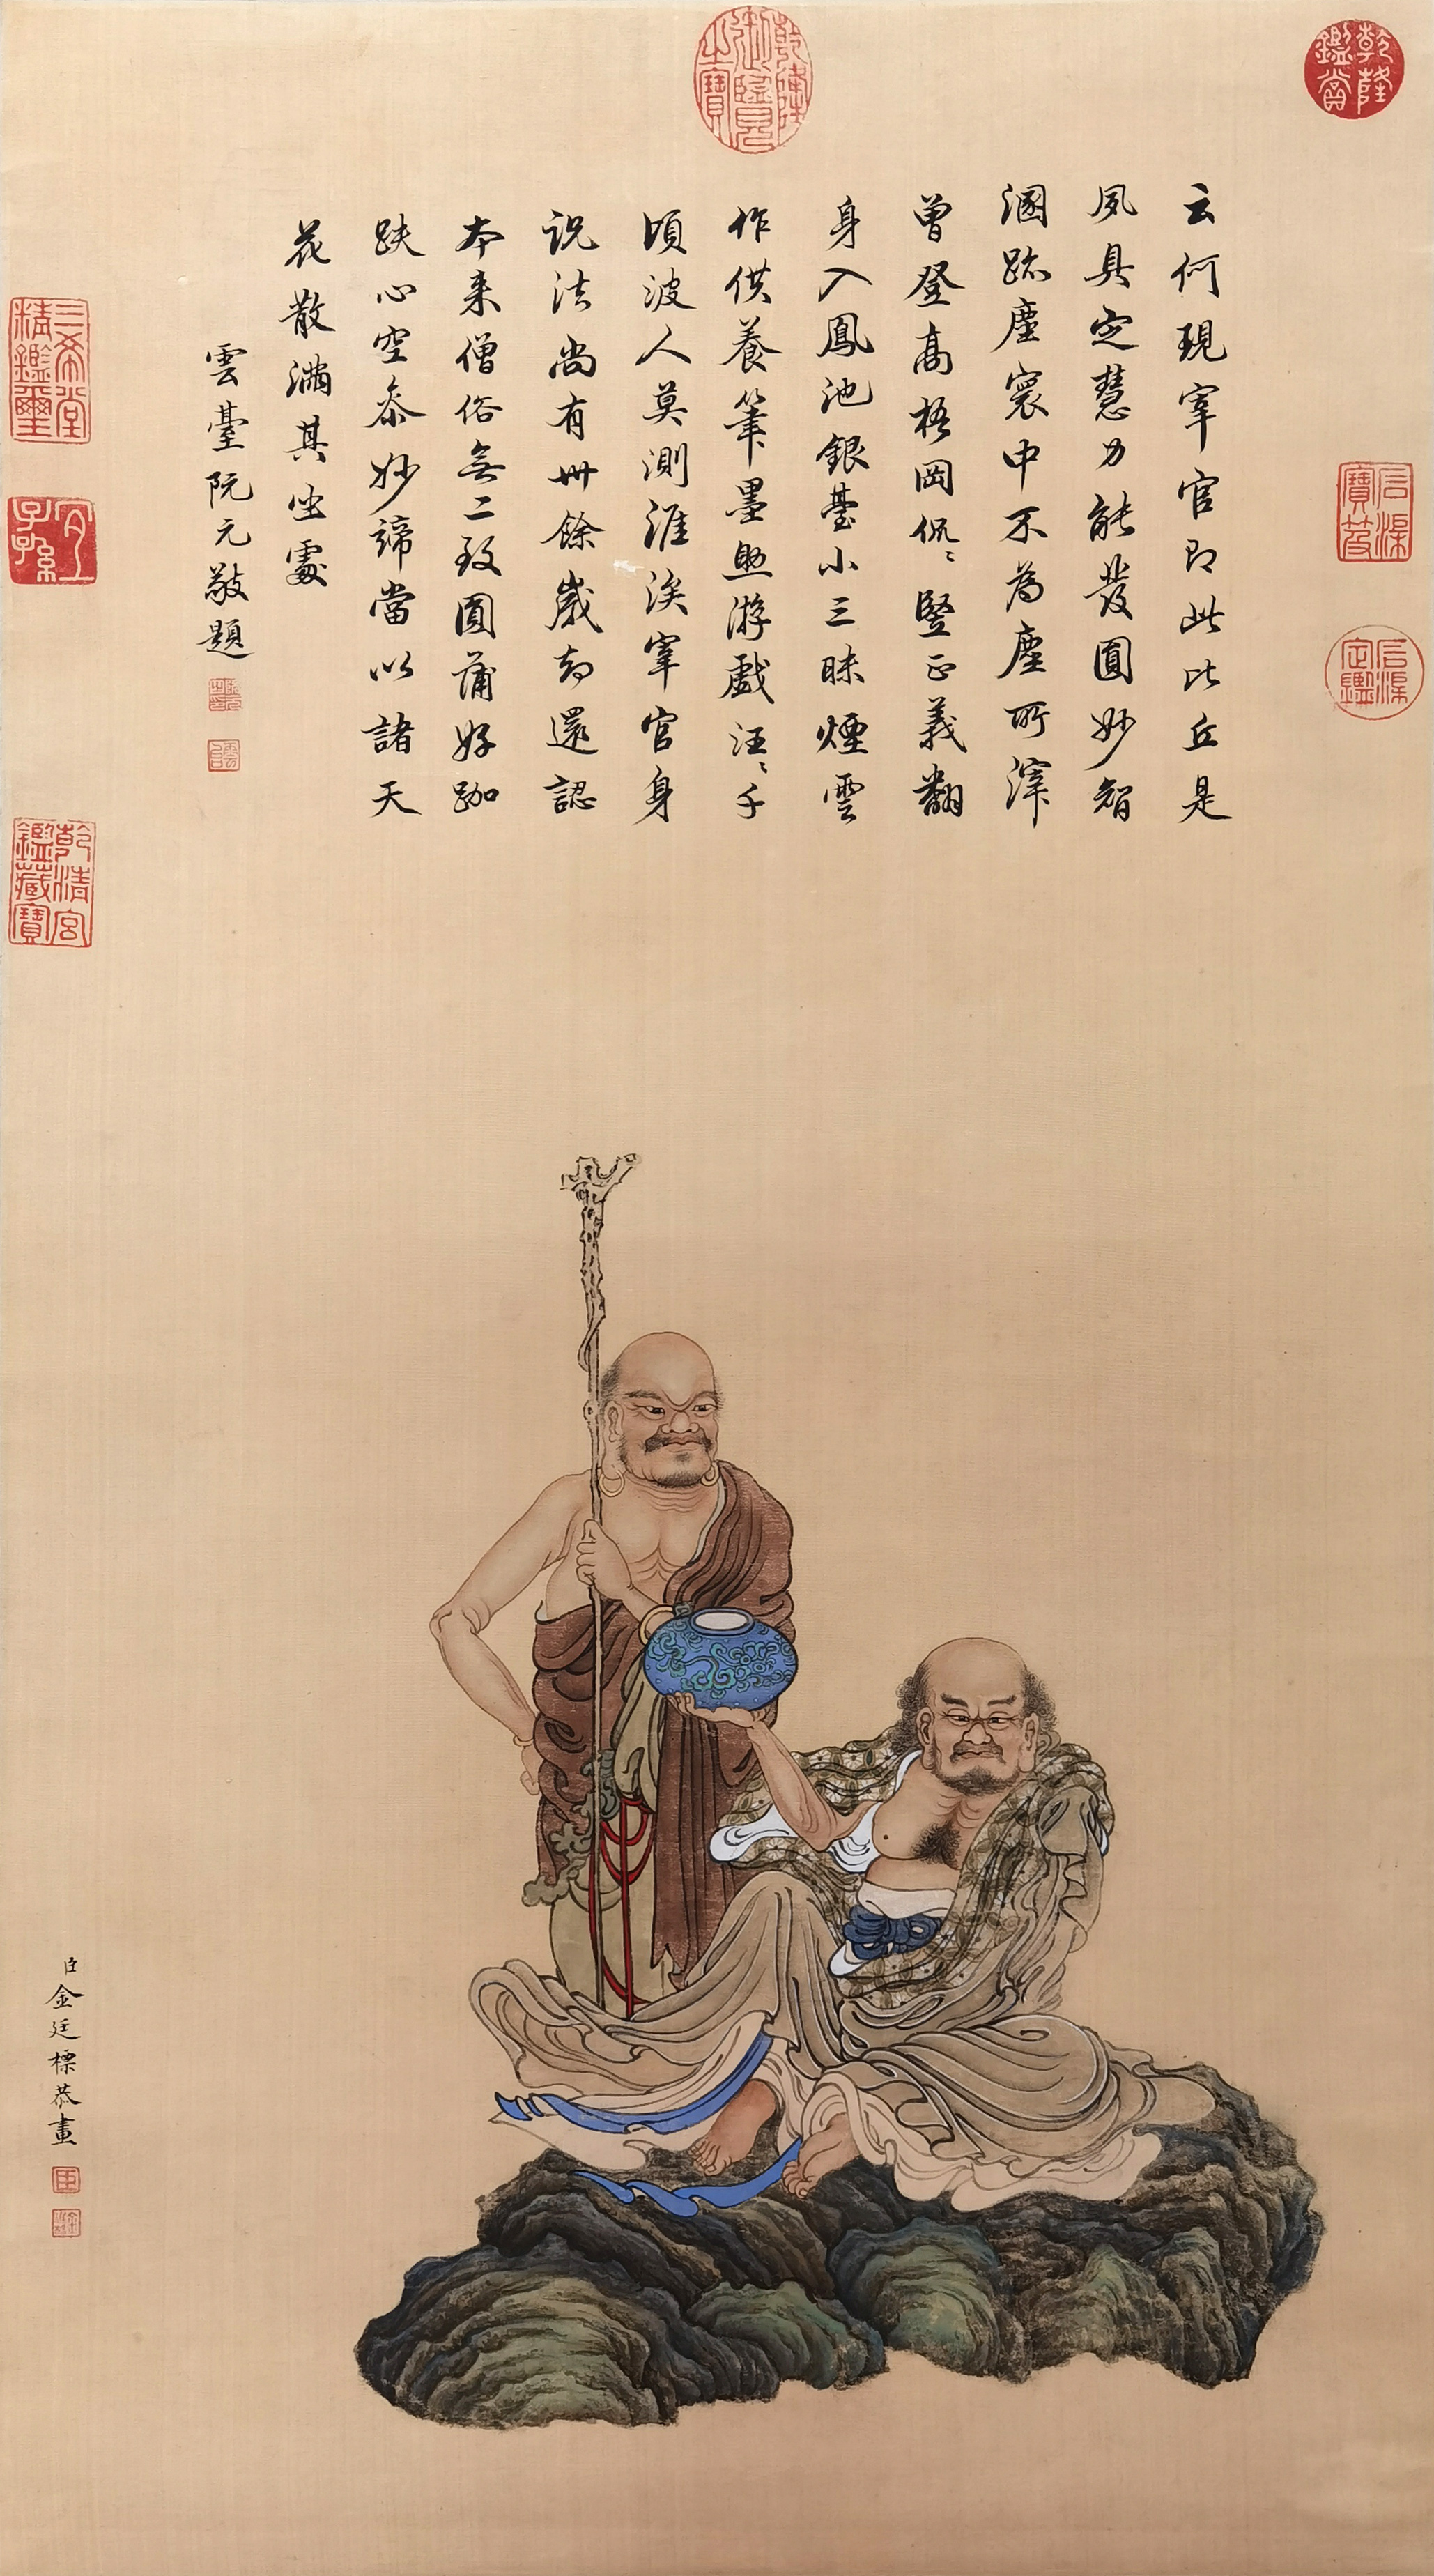 乾隆鑑賞
乾隆御覽之寶
石渠寶笈
石渠定鑑
云何現宰官即此比丘是
夙具定慧力能發圓妙智
溷跡塵寰中不為塵所滓
曾登高梧岡侃〻豎正義翻
身入鳳池銀臺小三昧煙雲
作供養筆墨且游戲汪〻千
頃波人莫測涯涘宰官身
說法尚有卅餘歲却還認
本来僧俗無二致圓蒲好跏
趺心空叅妙諦當以諸天
花散滿其坐處
雲臺阮元敬題
三希堂精鑑璽
宜子孫
乾清宮鑑藏寶
臣金廷標恭畫
臣